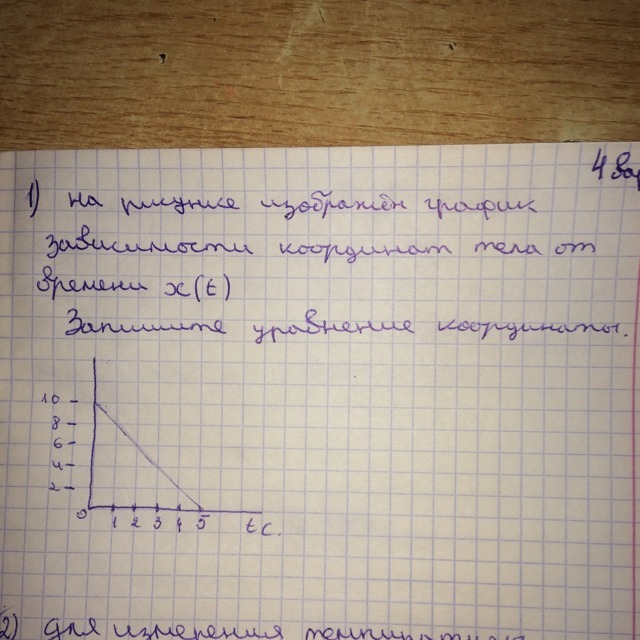 4 вар
1) на рисунке изображён график
зависимости координат тела от
времени x(t)
Запишите уравнение координаты.
10
8
6
4
2
0
1 2 3 4 5 t c.
2) для измерения